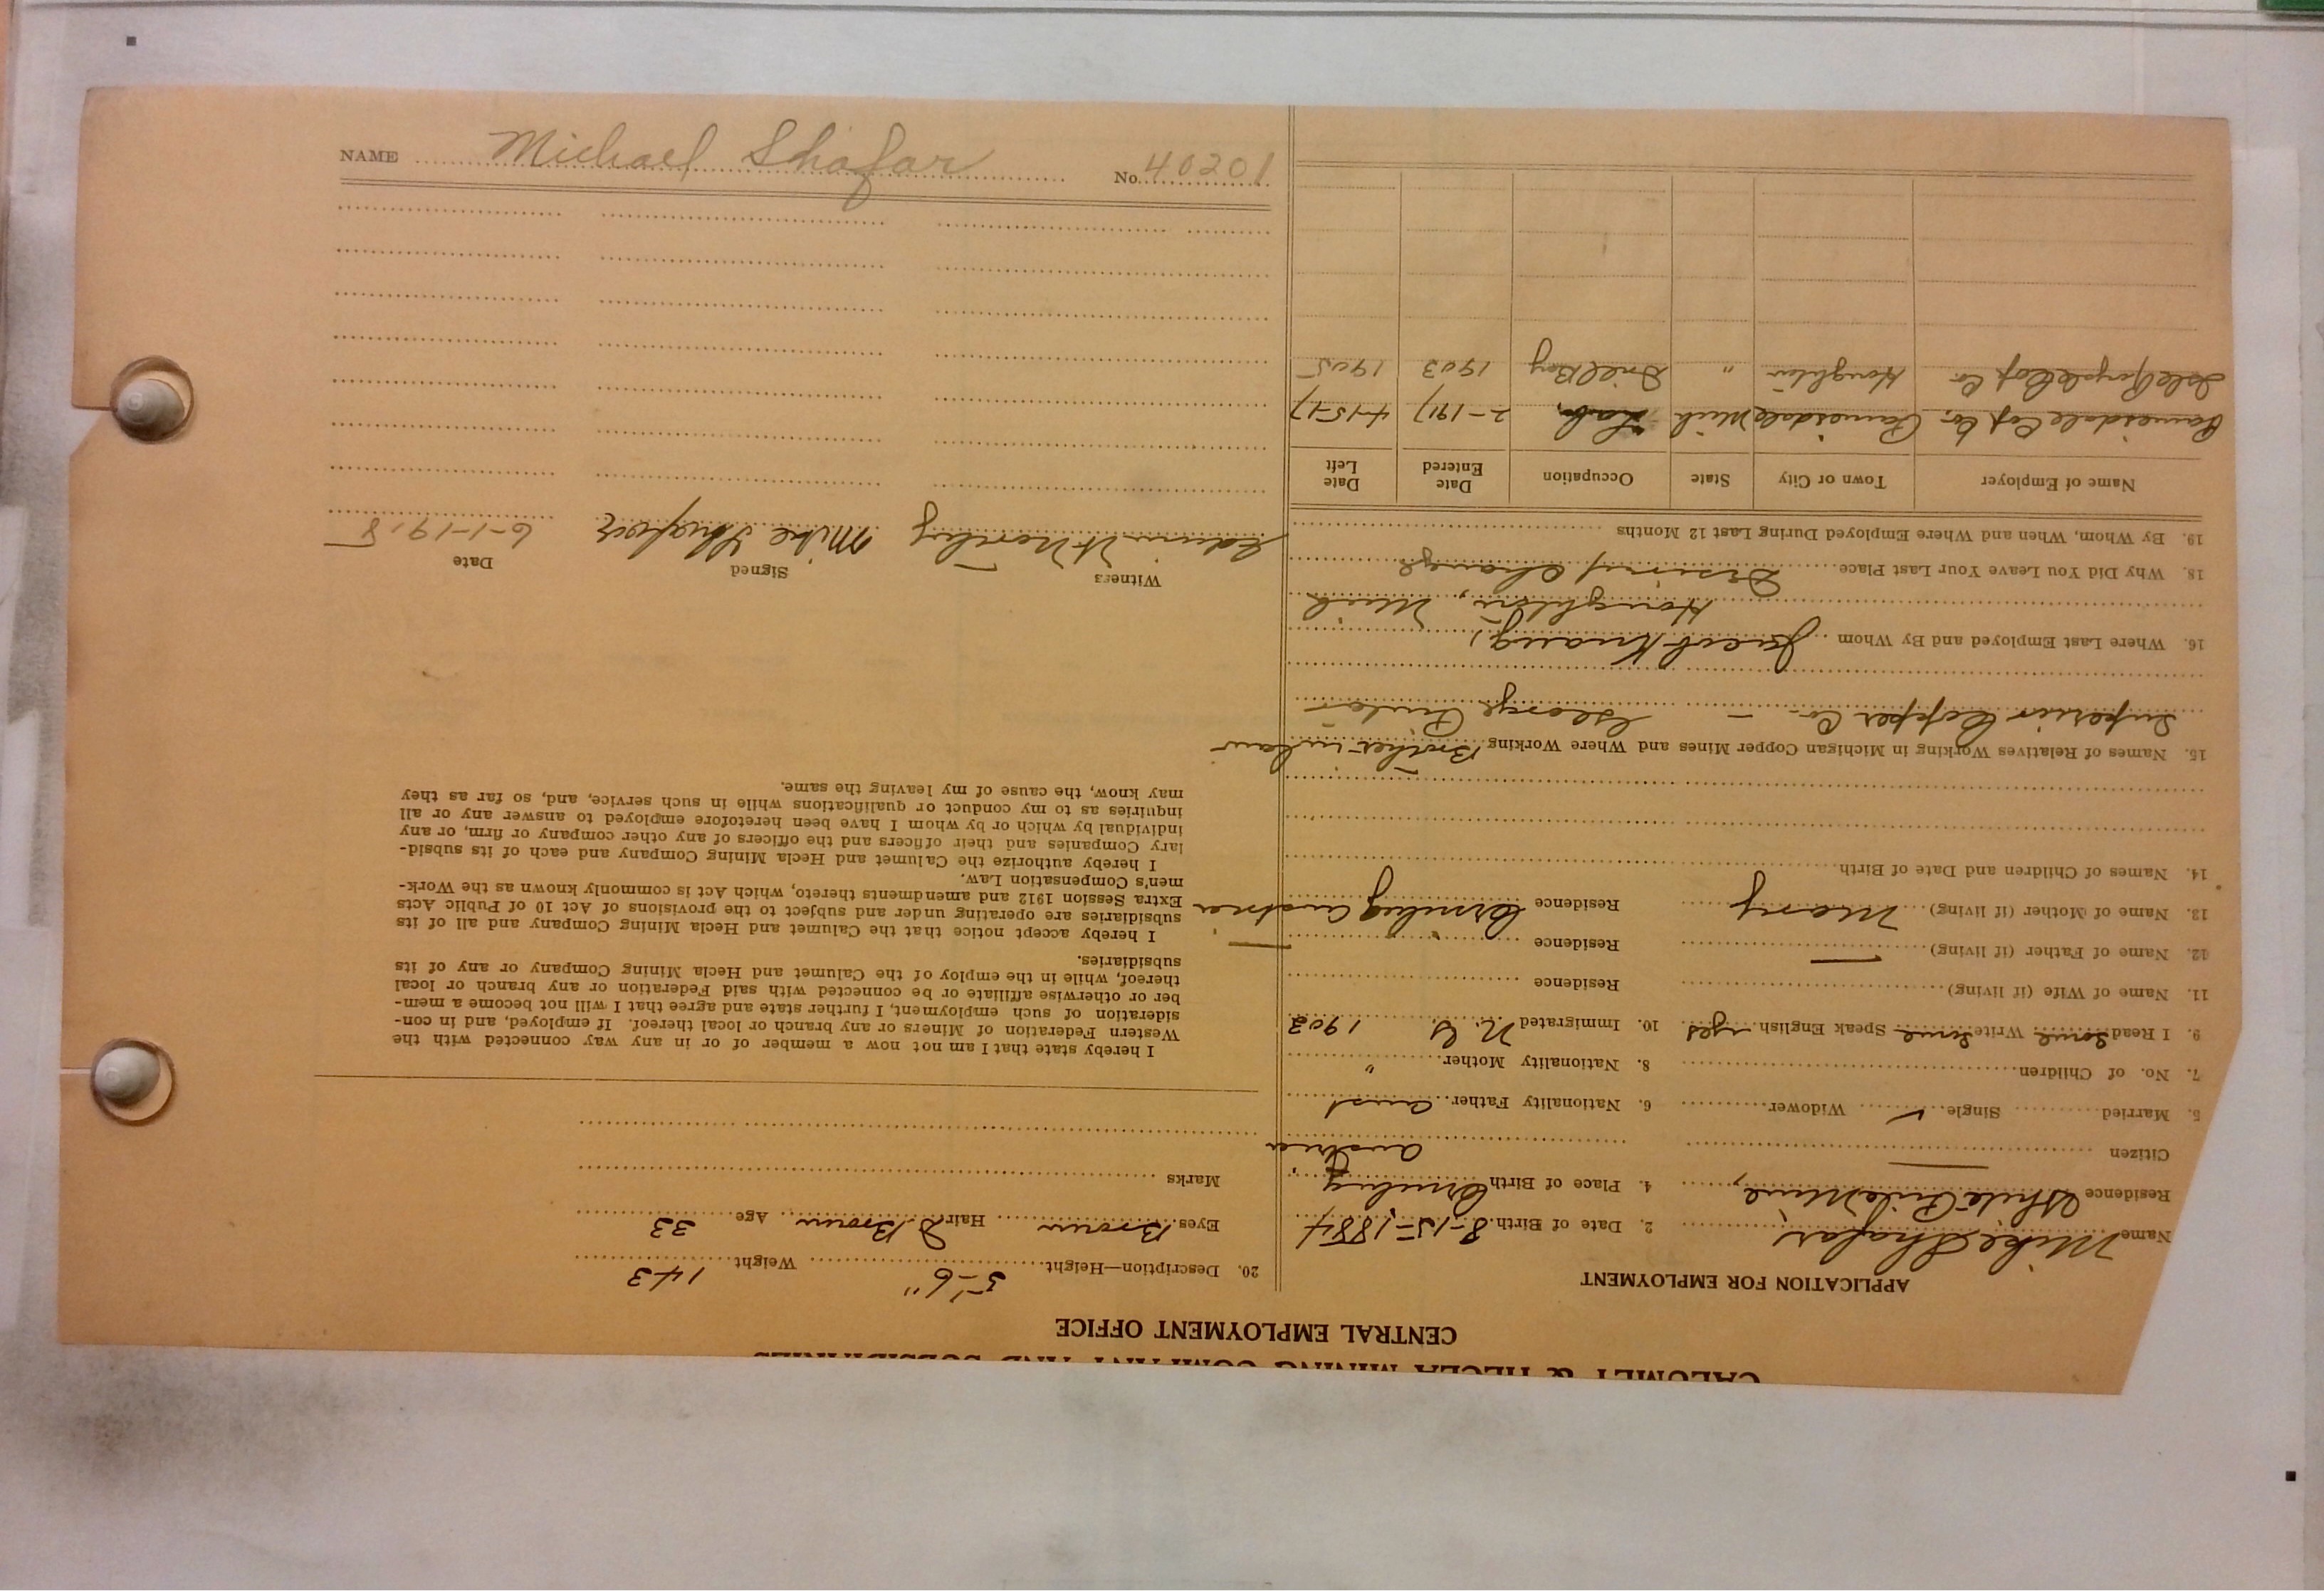 NAME Michael Shafar No. 40201
CALUMET & HECLA MINING COMPANY AND SUBSIDIARIES
CENTRAL EMPLOYMENT OFFICE
APPLICATION FOR EMPLOYMENT
Name Mike Shafar, 2. Date of Birth 8-15-1884
Residence White Mine, 4. Place of Birth
Citizen Austria
5. Married Single ✓ Widower 6. Nationality Father Aust
7. No. of Children 8. Nationality Mother "
9. I Read some Write some Speak English yes 10. Immigrated N.Y. 1902
11. Name of Wife (if living) Residence
12. Name of Father (if living) — Residence —
13. Name of Mother (if living) Mary Residence Austria
14. Names of Children and Date of Birth
15. Names of Relatives Working in Michigan Copper Mines and Where Working Brother in law
Superior Copper Co. - George
16. Where Last Employed and By Whom Jacob
Houghton, Mich
18. Why Did You Leave Your Last Place Desiring Change
19. By Whom, When and Where Employed During Last 12 Months
Name of Employer Town or City State Occupation Date Entered Date Left
Painesdale Cop Co. Painesdale Mich Lab. 2-1917 4-15-17
Isle Royale Cop Co Houghton " Drill Boy 1903 1905
20. Description—Height 5'-6" Weight 143
Eyes Brown Hair D Brown Age 33
Marks
I hereby state that I am not now a member of or in any way connected with the
Western Federation of Miners or any branch or local thereof. If employed, and in con-
sideration of such employment, I further state and agree that I will not become a mem-
ber or otherwise affiliate or be connected with said Federation or any branch or local
thereof, while in the employ of the Calumet and Hecla Mining Company or any of its
subsidiaries.
I hereby accept notice that the Calumet and Hecla Mining Company and all of its
subsidiaries are operating under and subject to the provisions of Act 10 of Public Acts
Extra Session 1912 and amendments thereto, which Act is commonly known as the Work-
men's Compensation Law.
I hereby authorize the Calumet and Hecla Mining Company and each of its subsid-
iary Companies and their officers and the officers of any other company or firm, or any
individual by which or by whom I have been heretofore employed to answer any or all
inquiries as to my conduct or qualifications while in such service, and, so far as they
may know, the cause of my leaving the same.
Witness Signed Date
Edwin Mike 6-1-1918